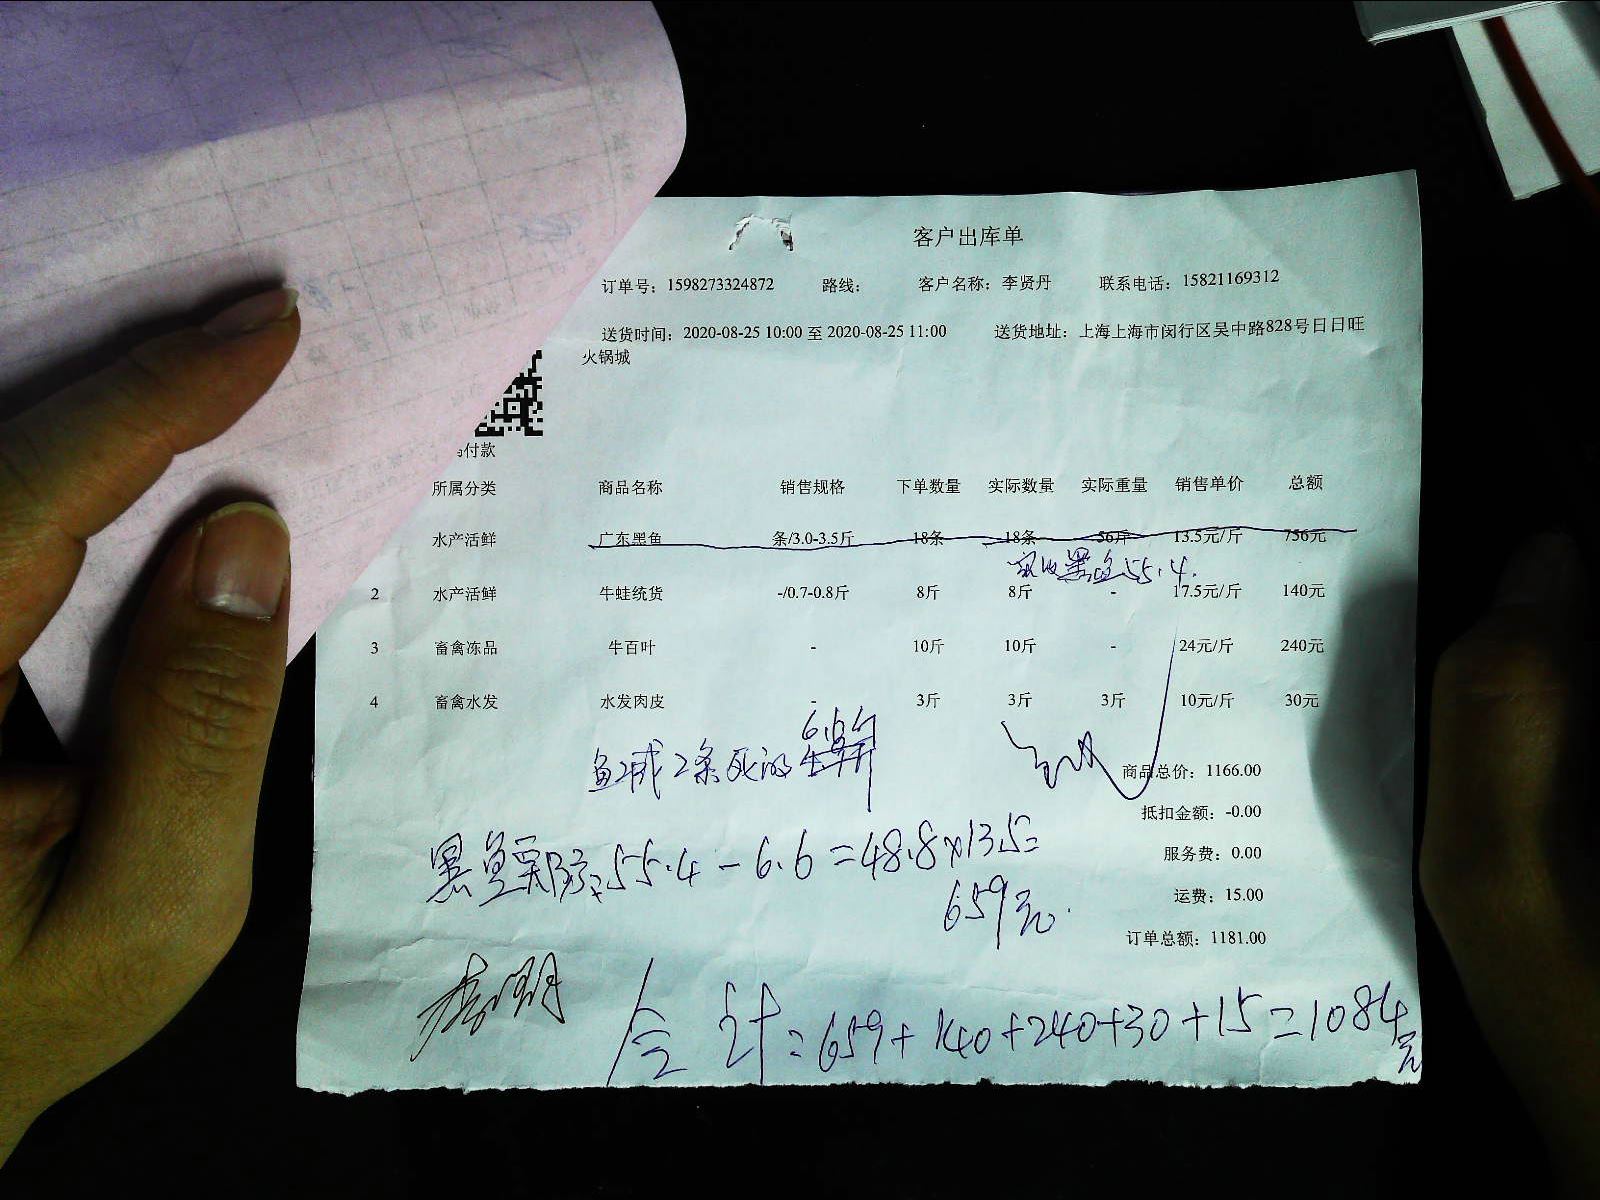 客户出库单
订单号：1598273324872 路线： 客户名称：李贤丹 联系电话：15821169312
送货时间：2020-08-25 10:00 至 2020-08-25 11:00 送货地址：上海上海市闵行区吴中路828号日日旺
火锅城
付款
所属分类 商品名称 销售规格 下单数量 实际数量 实际重量 销售单价 总额
水产活鲜 广东黑鱼 条/3.0-3.5斤 18条 18条 56斤 13.5元/斤 756元
实收黑鱼55.4.
2 水产活鲜 牛蛙统货 -/0.7-0.8斤 8斤 8斤 - 17.5元/斤 140元
3 畜禽冻品 牛百叶 - 10斤 10斤 - 24元/斤 240元
4 畜禽水发 水发肉皮 - 3斤 3斤 3斤 10元/斤 30元
6.6斤
鱼减2条死的
商品总价：1166.00
抵扣金额：-0.00
黑鱼实际：55.4-6.6=48.8×13.5=
服务费：0.00
659元.
运费：15.00
订单总额：1181.00
合计=659+140+240+30+15=1084元